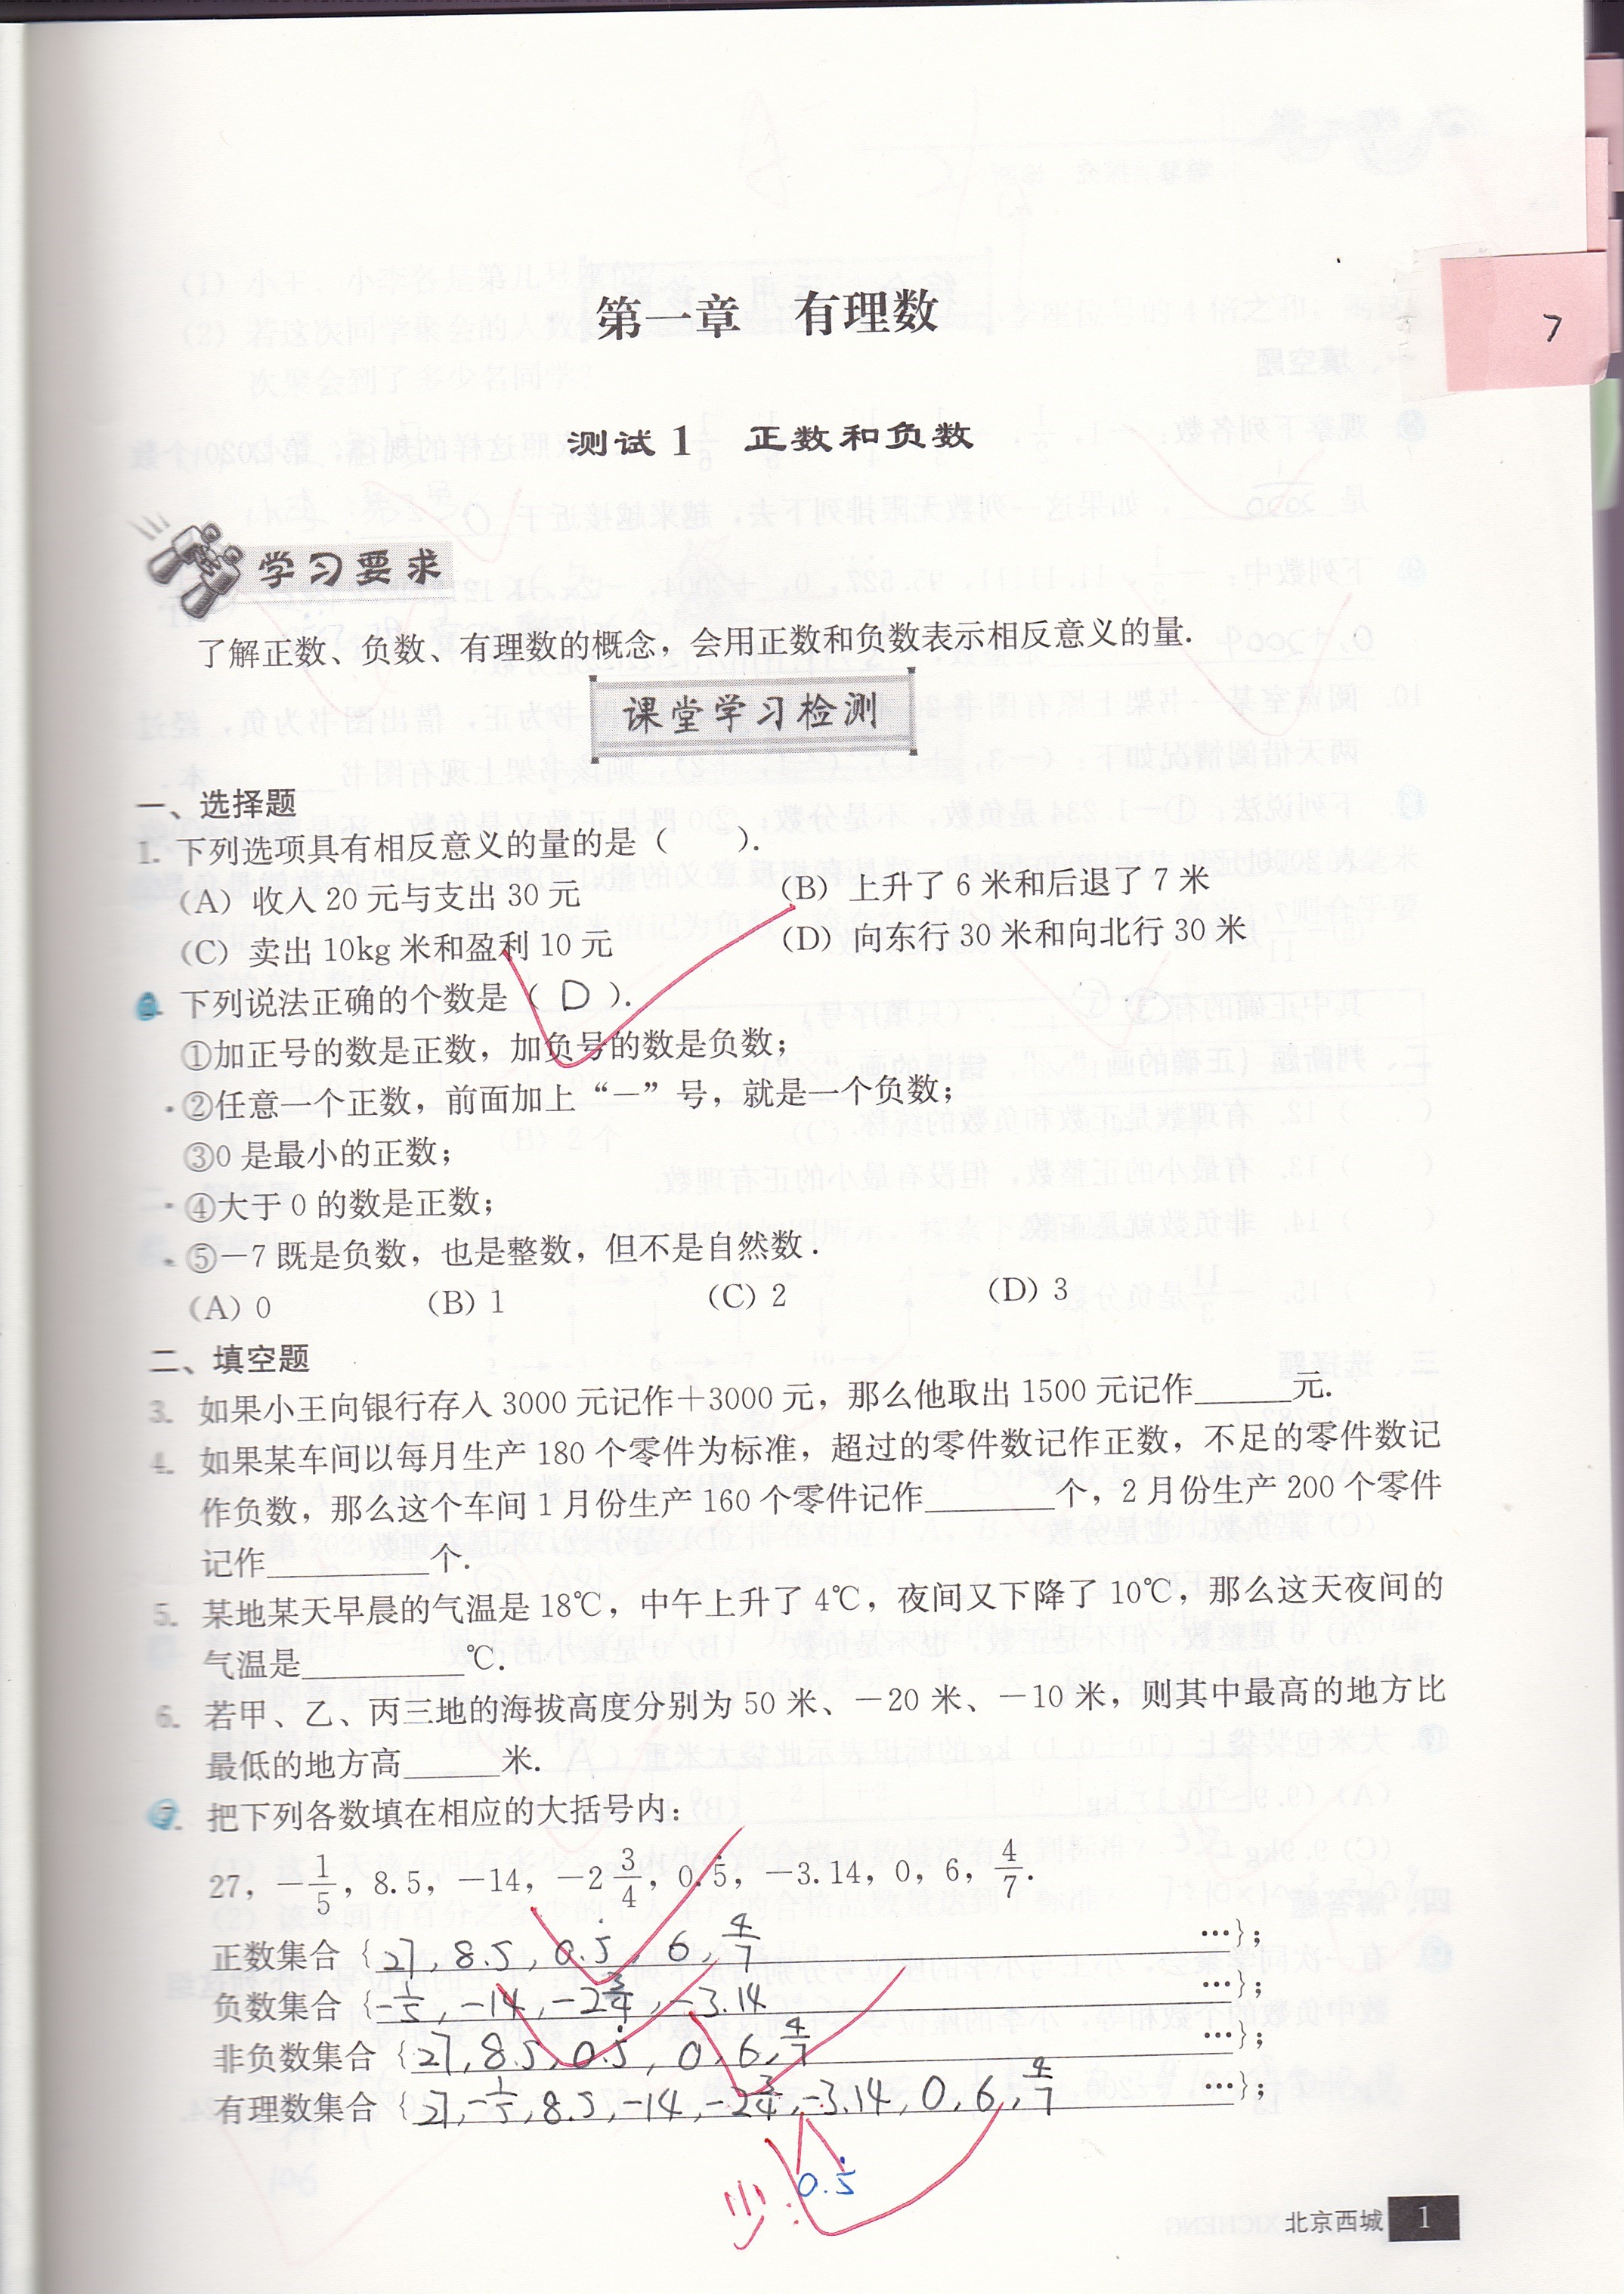 7
第一章　有理数
测试1　正数和负数
学习要求
了解正数、负数、有理数的概念，会用正数和负数表示相反意义的量.
课堂学习检测
一、选择题
1. 下列选项具有相反意义的量的是（　　）.
（A）收入 20 元与支出 30 元　（B）上升了 6 米和后退了 7 米
（C）卖出 10kg 米和盈利 10 元　（D）向东行 30 米和向北行 30 米
2. 下列说法正确的个数是（ D ）.
①加正号的数是正数，加负号的数是负数；
②任意一个正数，前面加上“－”号，就是一个负数；
③0 是最小的正数；
④大于 0 的数是正数；
⑤－7 既是负数，也是整数，但不是自然数.
（A）0　（B）1　（C）2　（D）3
二、填空题
3. 如果小王向银行存入 3000 元记作＋3000 元，那么他取出 1500 元记作______元.
4. 如果某车间以每月生产 180 个零件为标准，超过的零件数记作正数，不足的零件数记
作负数，那么这个车间 1 月份生产 160 个零件记作________个，2 月份生产 200 个零件
记作__________个.
5. 某地某天早晨的气温是 18℃，中午上升了 4℃，夜间又下降了 10℃，那么这天夜间的
气温是__________℃.
6. 若甲、乙、丙三地的海拔高度分别为 50 米、－20 米、－10 米，则其中最高的地方比
最低的地方高______米.
7. 把下列各数填在相应的大括号内：
27，－1/5，8.5，－14，－2 3/4，0.5̇，－3.14，0，6，4/7.
正数集合｛27, 8.5, 0.5̇, 6, 4/7 …｝；
负数集合｛-1/5, -14, -2 3/4, -3.14 …｝；
非负数集合｛27, 8.5, 0.5̇, 0, 6, 4/7 …｝；
有理数集合｛27, -1/5, 8.5, -14, -2 3/4, -3.14, 0, 6, 4/7 …｝；
少: 0.5̇
北京西城 1